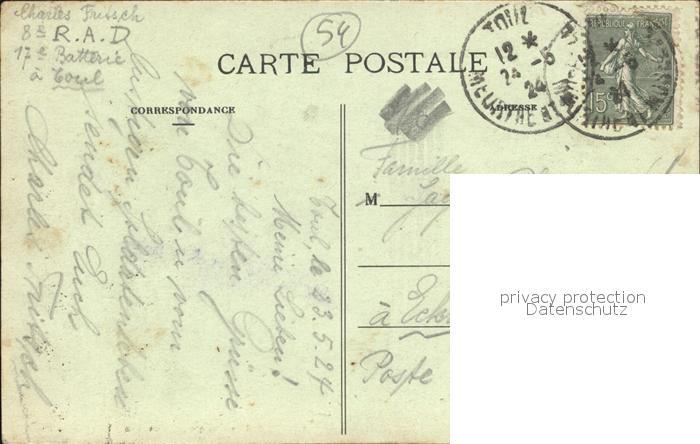 Charles Fritsch
8e R.A.D
17e Batterie
à Toul
54
CARTE POSTALE
CORRESPONDANCE
ADRESSE
TOUL
12 *
24 -5
24
MEURTHE ET M
REPUBLIQUE FRANÇAISE
15c
Toul, le 23.5.24
Meine Lieben!
Die besten Grüsse
von Toul u vom
sendet Euch
Charles Fritsch
Famille
M
à Eck
Poste
privacy protection
Datenschutz